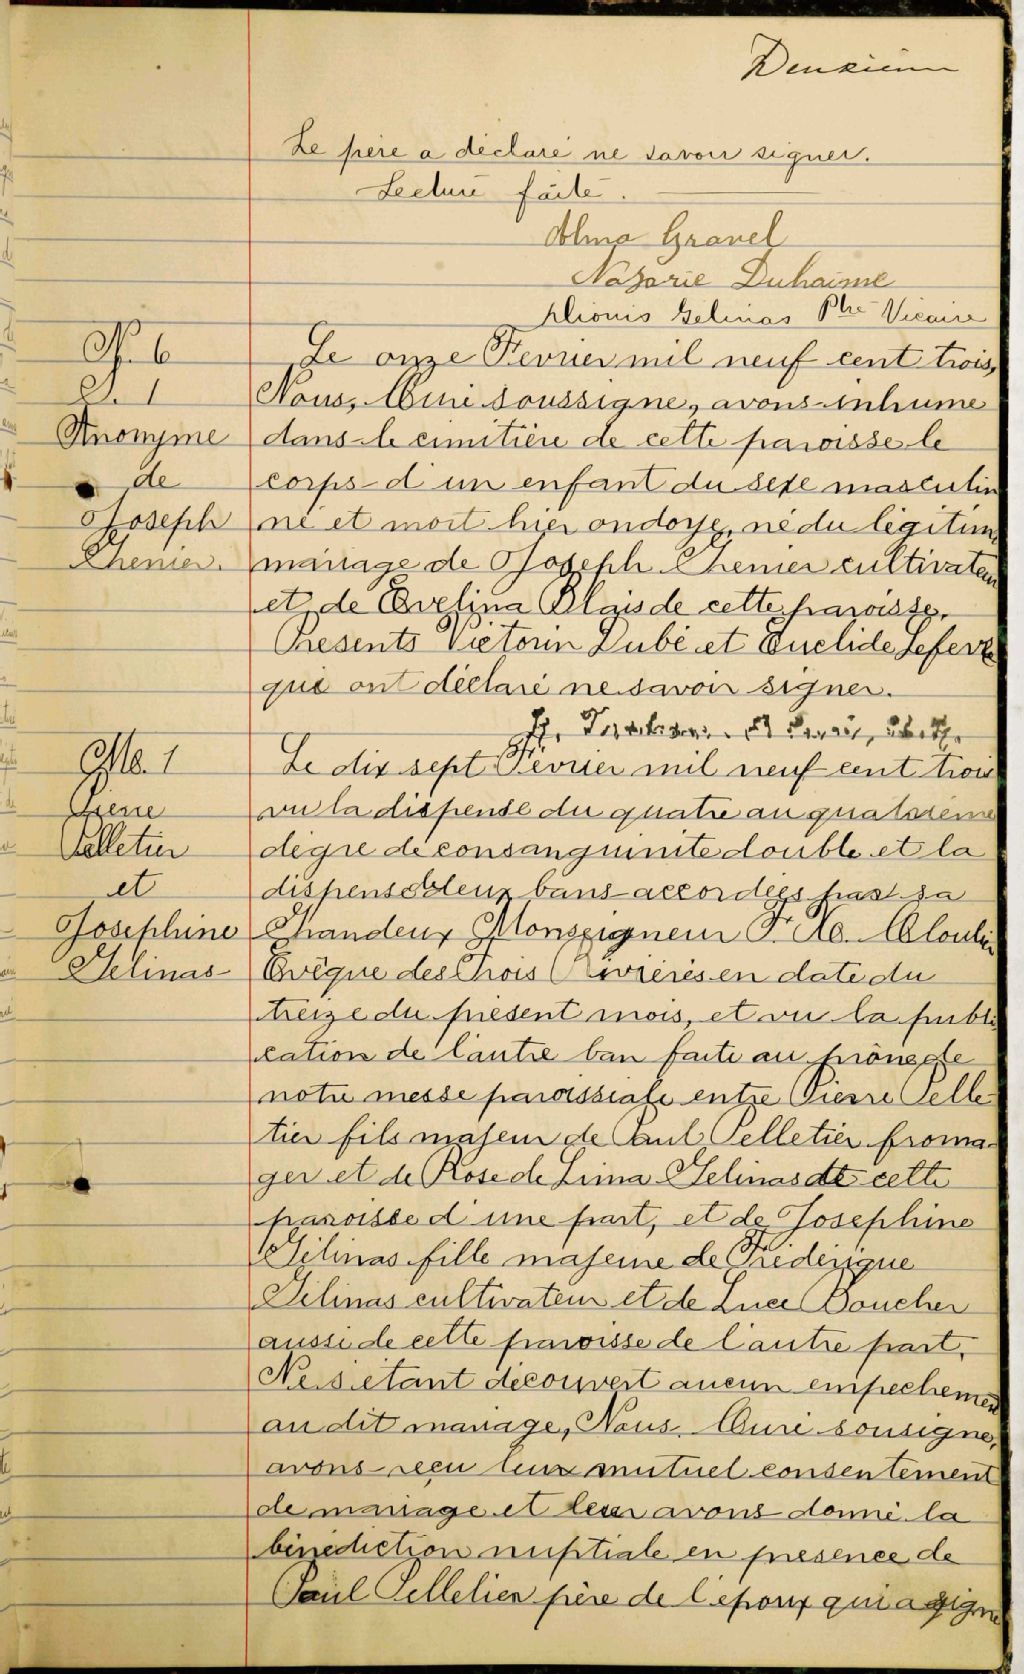 Deuxième
Le père a déclaré ne savoir signer.
Lecture faite.
Alma Gravel
Nazarie Duhaime
Dionis Gélinas Ptre Vicaire
N. 6
S. 1
Anonyme
de
Joseph
Thenier.
Le onze Fevrier mil neuf cent trois,
Nous, Curé soussigné, avons inhumé
dans le cimitière de cette paroisse le
corps d'un enfant du sexe masculin
né et mort hier ondoyé, né du légitime
mariage de Joseph Thenier cultivateur
et de Evelina Blais de cette paroisse.
Presents Victorin Dubé et Euclide Lefevre
qui ont déclaré ne savoir signer.
M. 1
Pierre
Pelletier
et
Josephine
Gelinas
Le dix sept Fevrier mil neuf cent trois
vu la dispense du quatre au quatrième
dégré de consanguinité double et la
dispense de deux bans accordées par sa
Grandeur Monseigneur F. X. Cloutier
Evêque des Trois Rivières en date du
treize du présent mois, et vu la publi
cation de l'autre ban faite au prône de
notre messe paroissiale entre Pierre Pelle
tier fils majeur de Paul Pelletier froma-
ger et de Rose de Lima Gelinas de cette
paroisse d'une part, et de Josephine
Gélinas fille majeure de Frédérique
Gélinas cultivateur et de Luce Boucher
aussi de cette paroisse de l'autre part.
Ne s'étant découvert aucun empechement
au dit mariage, Nous, Curé sousigné,
avons reçu leur mutuel consentement
de mariage et leur avons donné la
bénédiction nuptiale en presence de
Paul Pelletier père de l'époux qui a signé